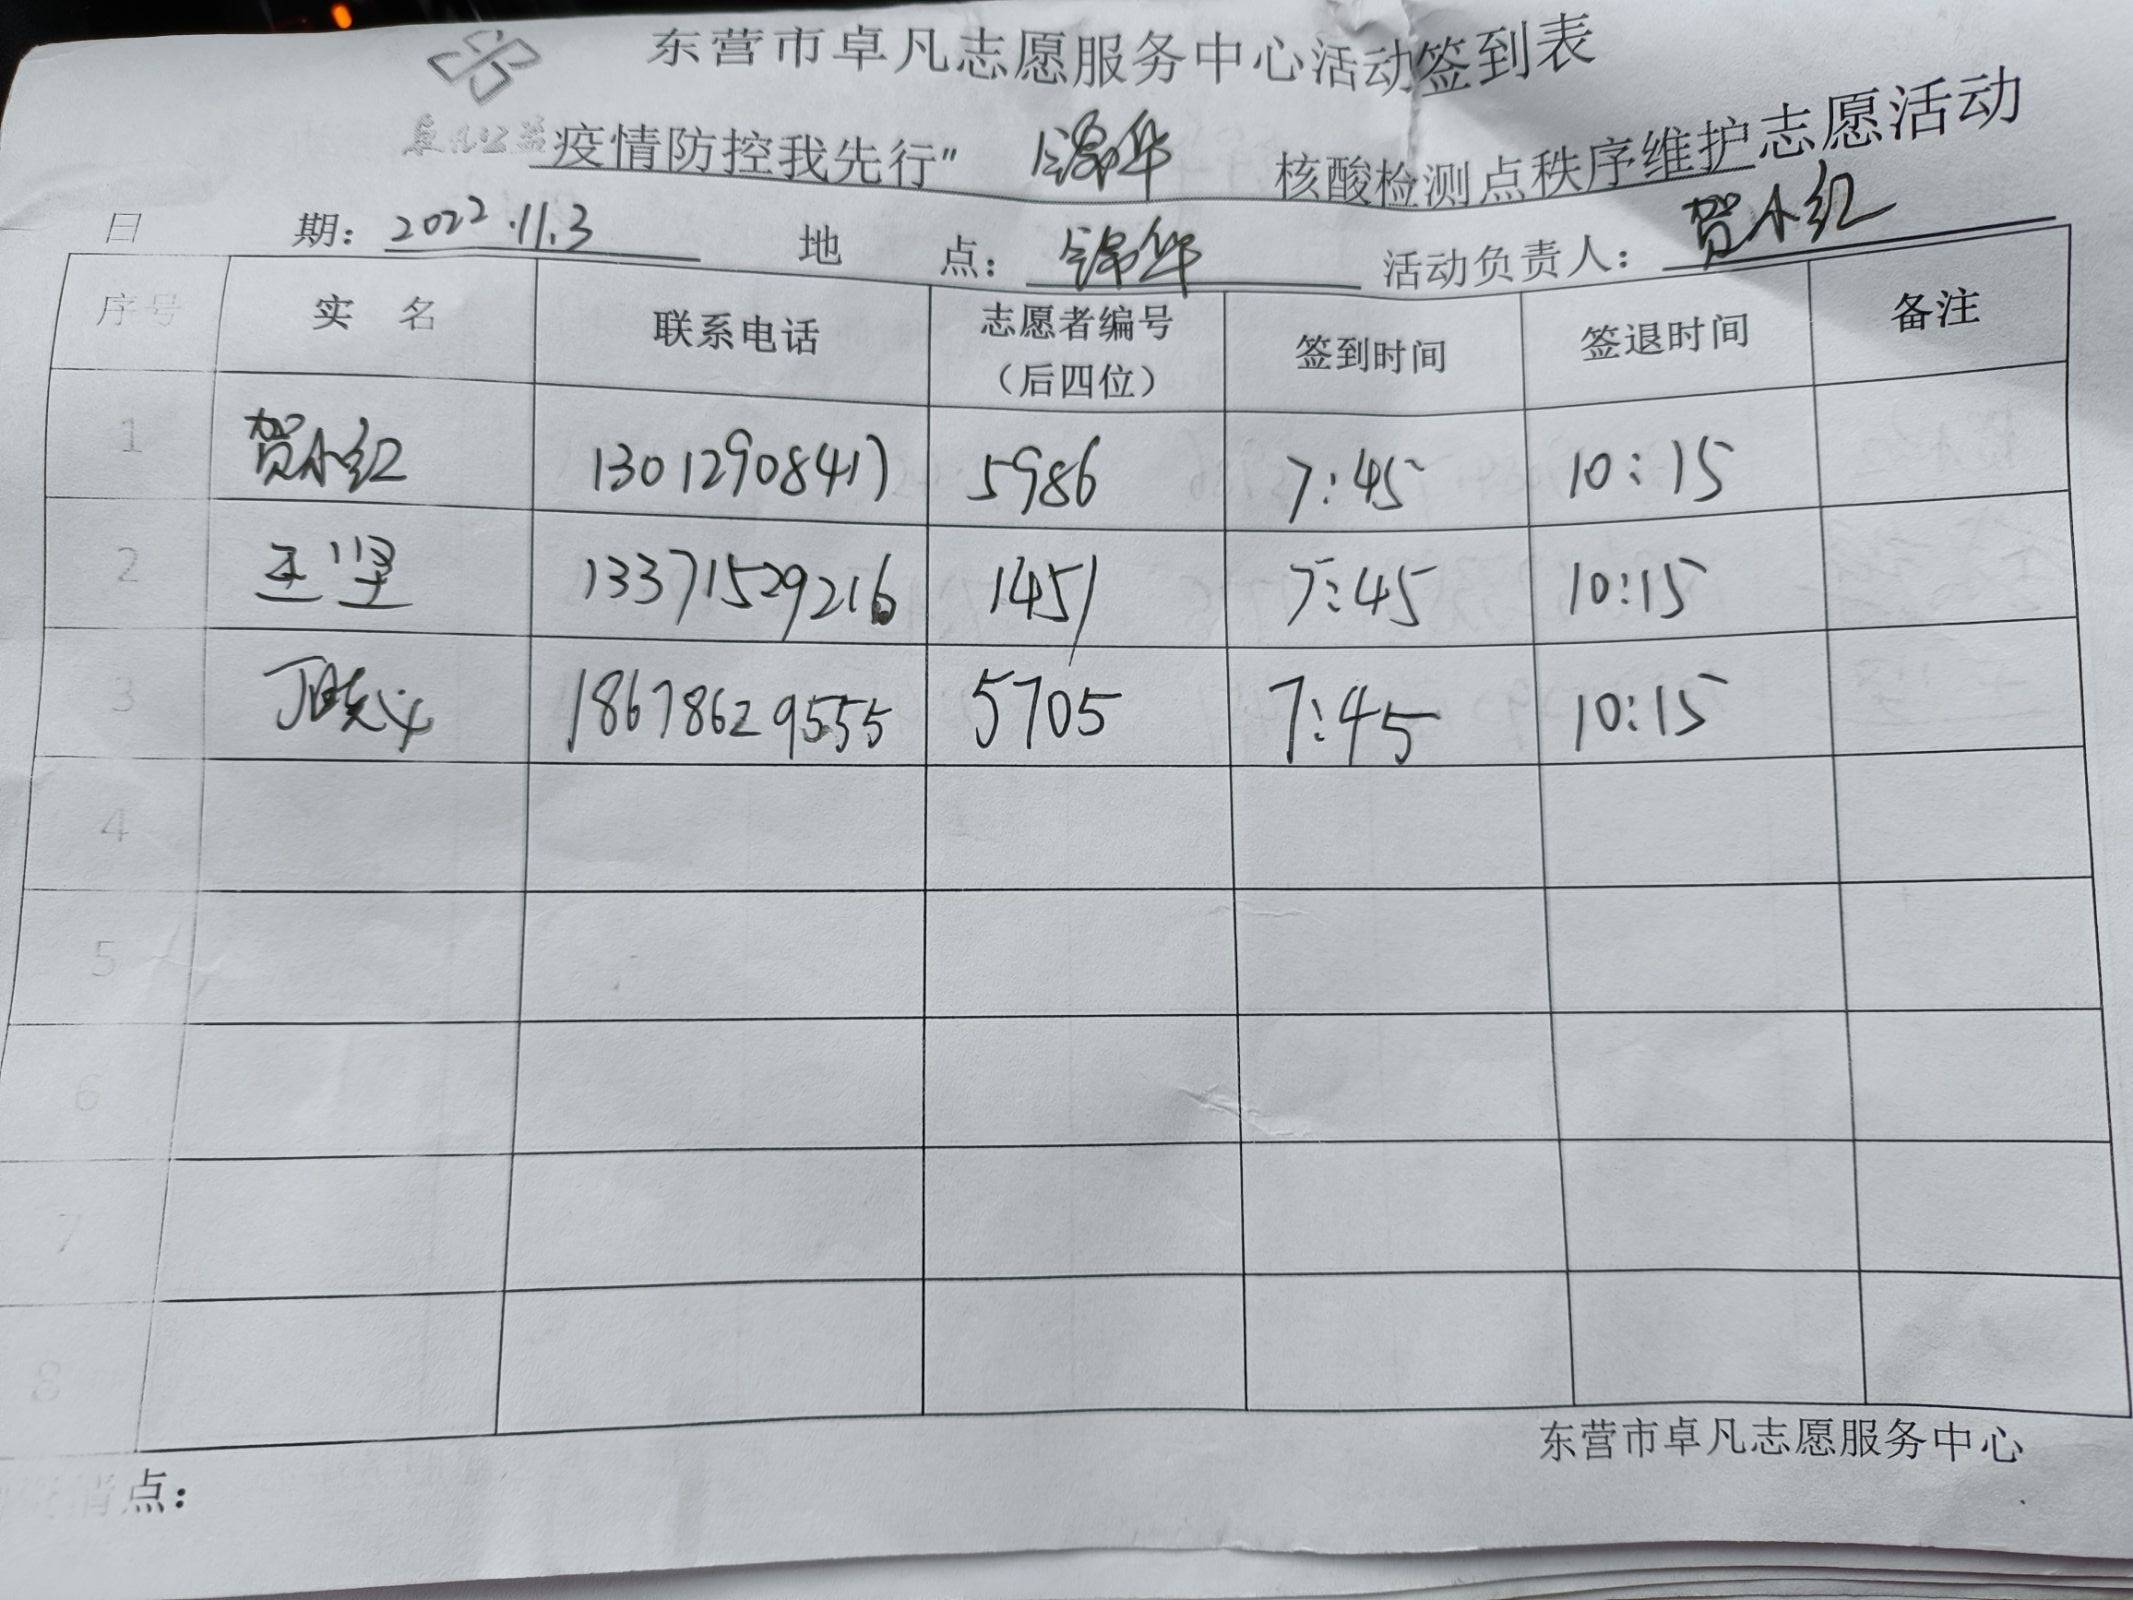 东营市卓凡志愿服务中心活动签到表
卓凡公益
疫情防控我先行” 锦华 核酸检测点秩序维护志愿活动
日期：2022.11.3 地点：锦华 活动负责人：贺小红
序号 实名 联系电话 志愿者编号（后四位） 签到时间 签退时间 备注
1 贺小红 13012908417 5986 7:45 10:15
2 王坚 13371529216 1451 7:45 10:15
3 丁晓义 18678629555 5705 7:45 10:15
4
5
6
7
8
东营市卓凡志愿服务中心
点：